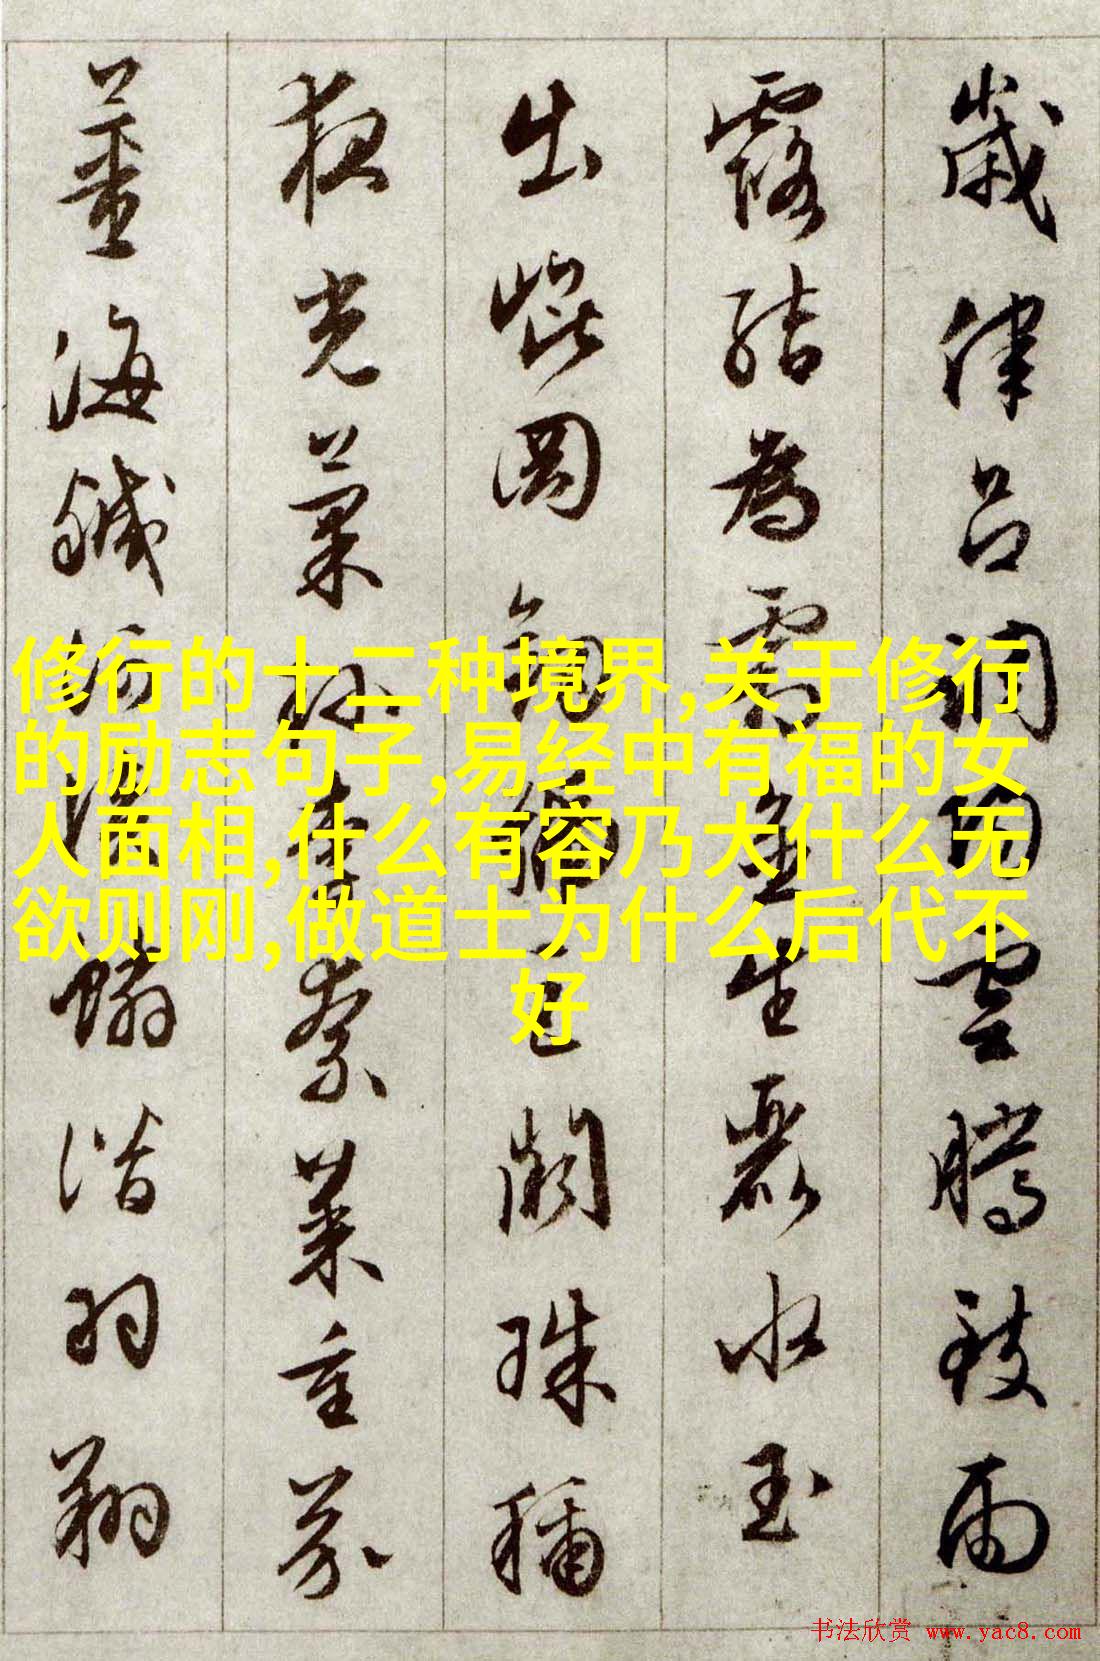 歲律呂調陽雲騰致雨
露結為霜金生麗水玉
出崐岡劍號巨闕珠稱
夜光菓珍李柰菜重芥
薑海鹹河淡鱗潛羽翔
修行的十二种境界,关于修行
的励志句子,易经中有福的女
人面相,什么有容乃大什么无
欲则刚,做道士为什么后代不
好
书法欣赏 www.yac8.com